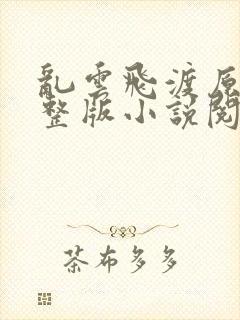 亂雲飛渡原
整版小說閱
茶布多多